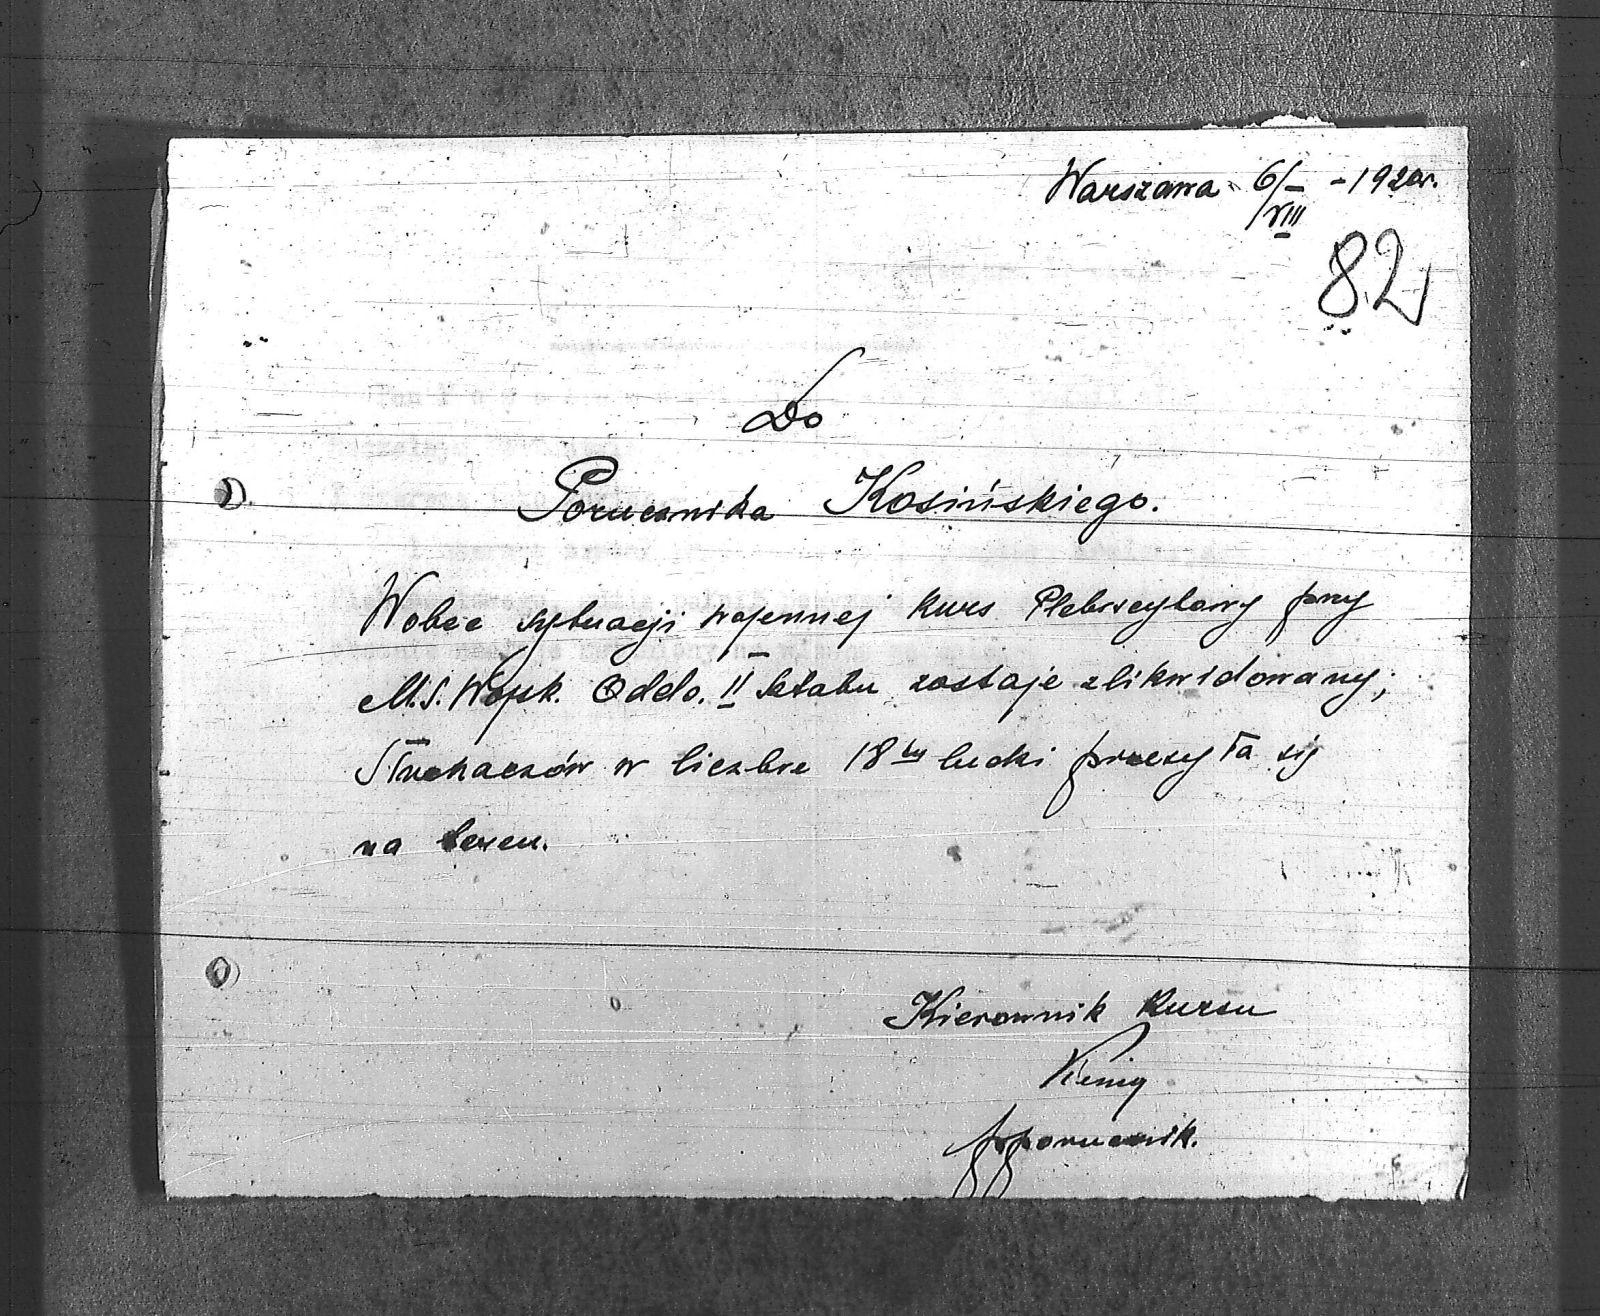 Warszawa 6/VIII - 1920r.
82
Do
Porucznika Kosińskiego.
Wobec sytuacji wojennej kurs Plebiscytowy przy
M.S.Wojsk. Oddz. II Sztabu zostaje zlikwidowany;
Słuchaczów w liczbie 18tu ludzi przesyła się
na teren.
Kierownik Kursu
ppporucznik.